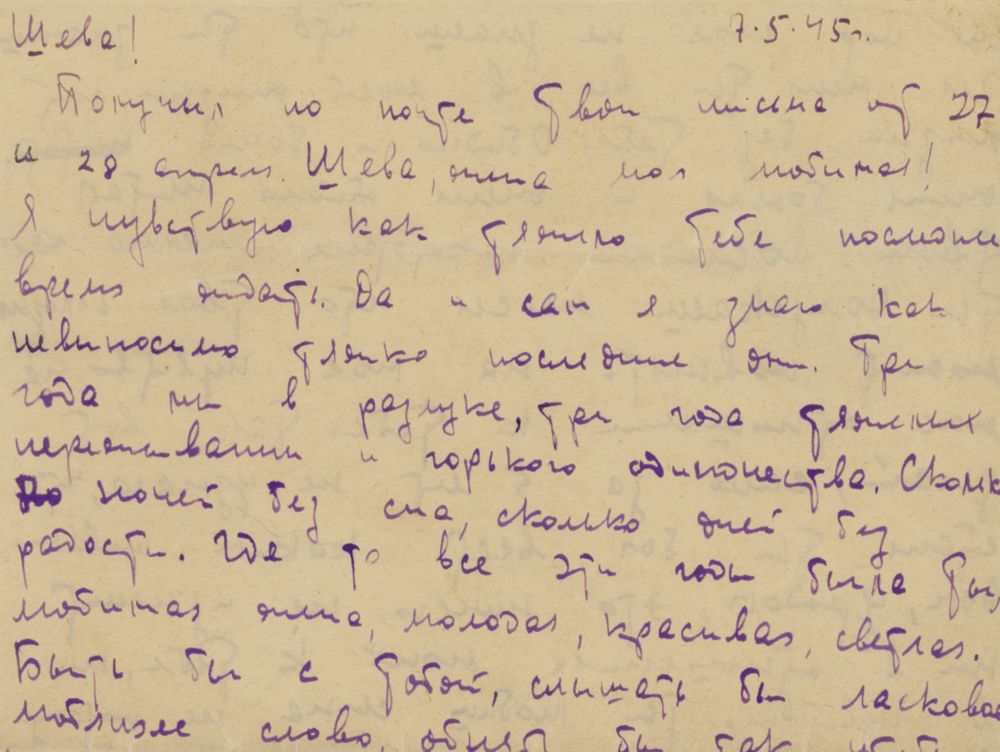 Шева! 7.5.45г.
Получил по почте твои письма от 27
и 28 апреля. Шева, жена моя любимая!
Я чувствую как тяжело тебе последние
время ждать. Да и сам я знаю как
невыносимо тяжко последние дни. Три
года мы в разлуке, три года тяжелых
переживаний и горького одиночества. Сколько
ночей без сна, сколько дней без
радости. Где то все эти годы была ты,
любимая жена, молодая, красивая, светлая.
Быть бы с тобой, слышать бы ласковое
слово, обнять бы так